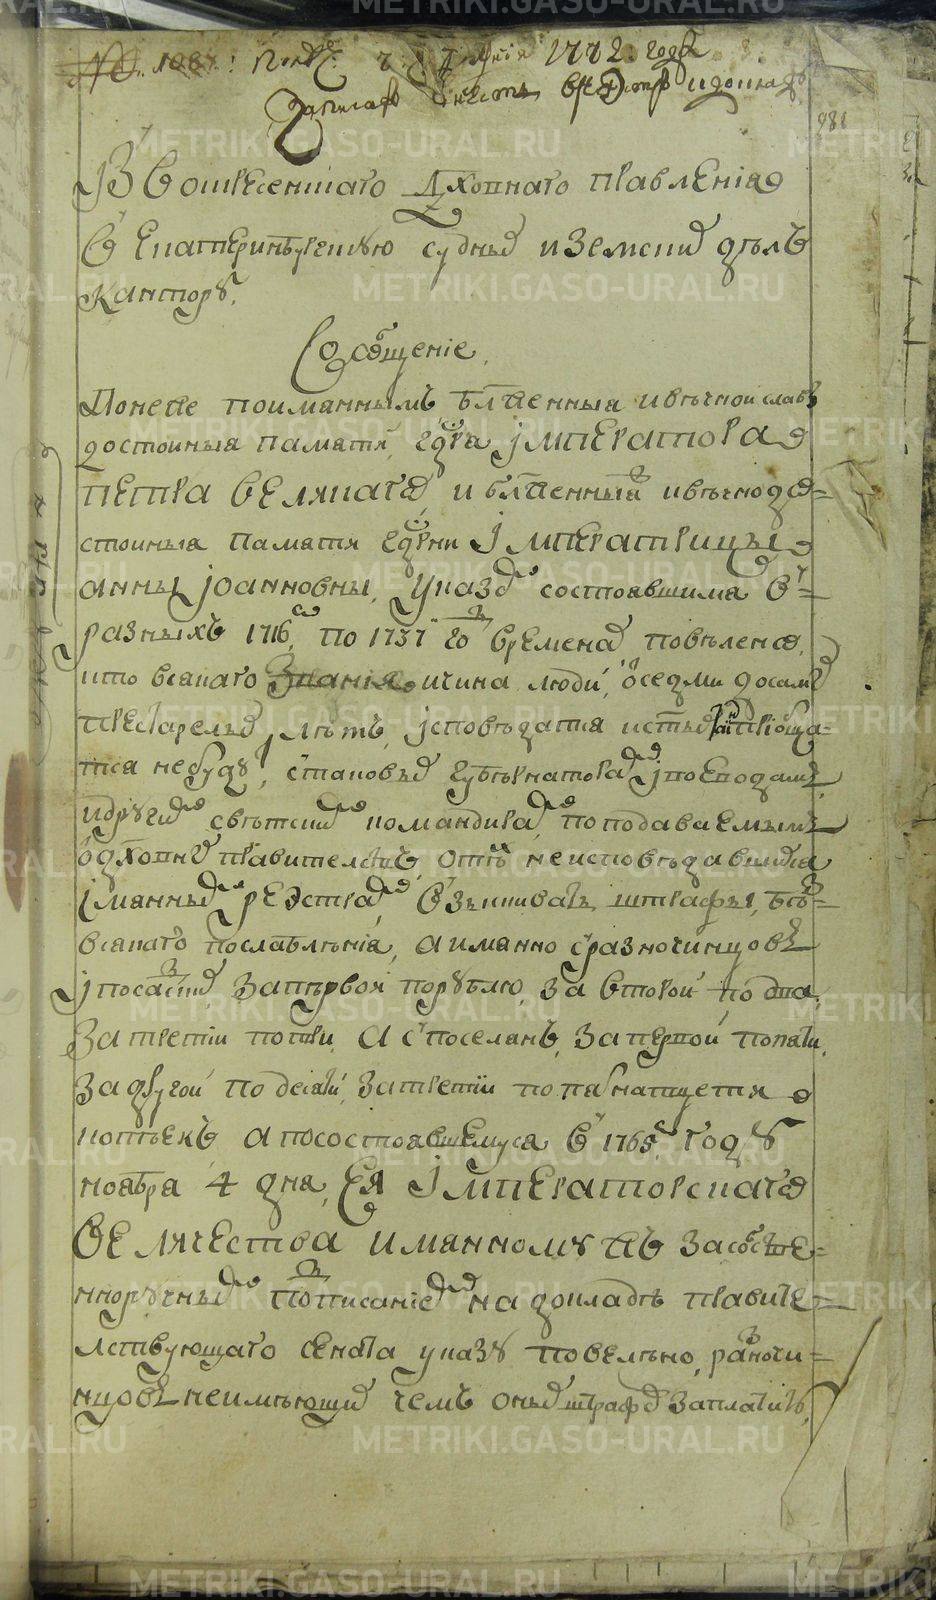 № 1087: 1772: года
Записав
981
Из Воскресенскаго Духовнаго правления
в Екатеринбургскую судных и земских дел
кантору.
Сообщение.
Понеже по имянным блаженныя и вечной славы
достойныя памяти, Гдря Императора
Петра Великаго, и блаженныя и вечно до=
стойныя памяти Гдрни Императрицы
Анны Иоанновны, указом состоявшимся в=
разных 1716, по 1737 го временах повелено,
что всякаго звания и чина люди, от седми до самых
престарелых лет, исповедатся и приобща=
тся не будут, с таковых губернаторам и воеводам,
и других светских командирам, по подаваемым
от духовных правительств, о тех неисповедавшихся
имянных реэстрам, взыскивать штрафы, без=
всякаго послабления, а имянно с разночинцов
и посадских, за первой по рублю, за второй по два,
за третий по три, а с поселян, за первой по пяти,
за другой по десяти, за третий по пятнатцети
копеек, а по состоявшемуся в 1765 году
ноября 4 дня, Ея Императорскаго
Величества имянному за собстве=
нноручным подписанием на докладе правите=
лствующаго Сената указу повелено, разночи=
нцов неимеющих чем оных штрафов заплатить,
METRIKI.GASO-URAL.RU